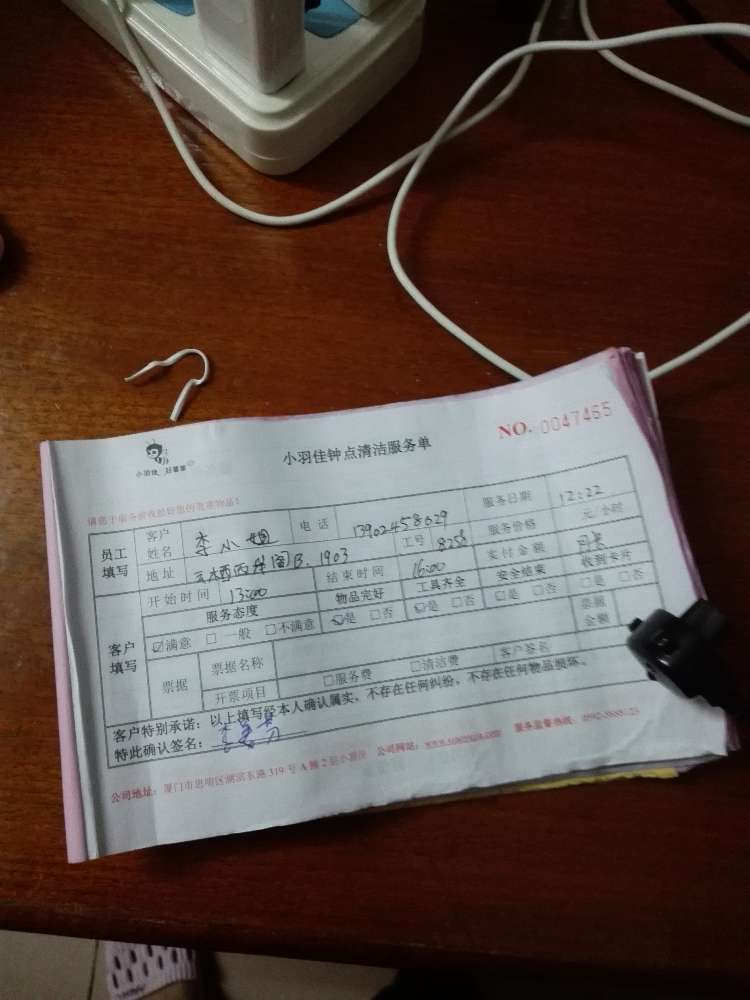 小羽佳 好管家
小羽佳钟点清洁服务单
NO. 0047465
员工填写 客户姓名 李小姐 电话 13902458629 服务日期 12:22
地址 1903 工号 8258 服务价格 元/小时
开始时间 13:00 结束时间 16:00 实付金额 月卡
客户填写 服务态度 物品完好 工具齐全 安全结束 收到卡片
☑满意 □一般 □不满意 ☑是 □否 ☑是 □否 ☑是 □否 □是 □否
票据 票据名称 票据金额
开票项目 □服务费 □清洁费 客户签名
客户特别承诺:以上填写经本人确认属实,不存在任何纠纷,不存在任何物品损坏。
特此确认签名:
公司地址:厦门市思明区湖滨东路319号A幢2层小羽佳 公司网站: 服务监督热线: